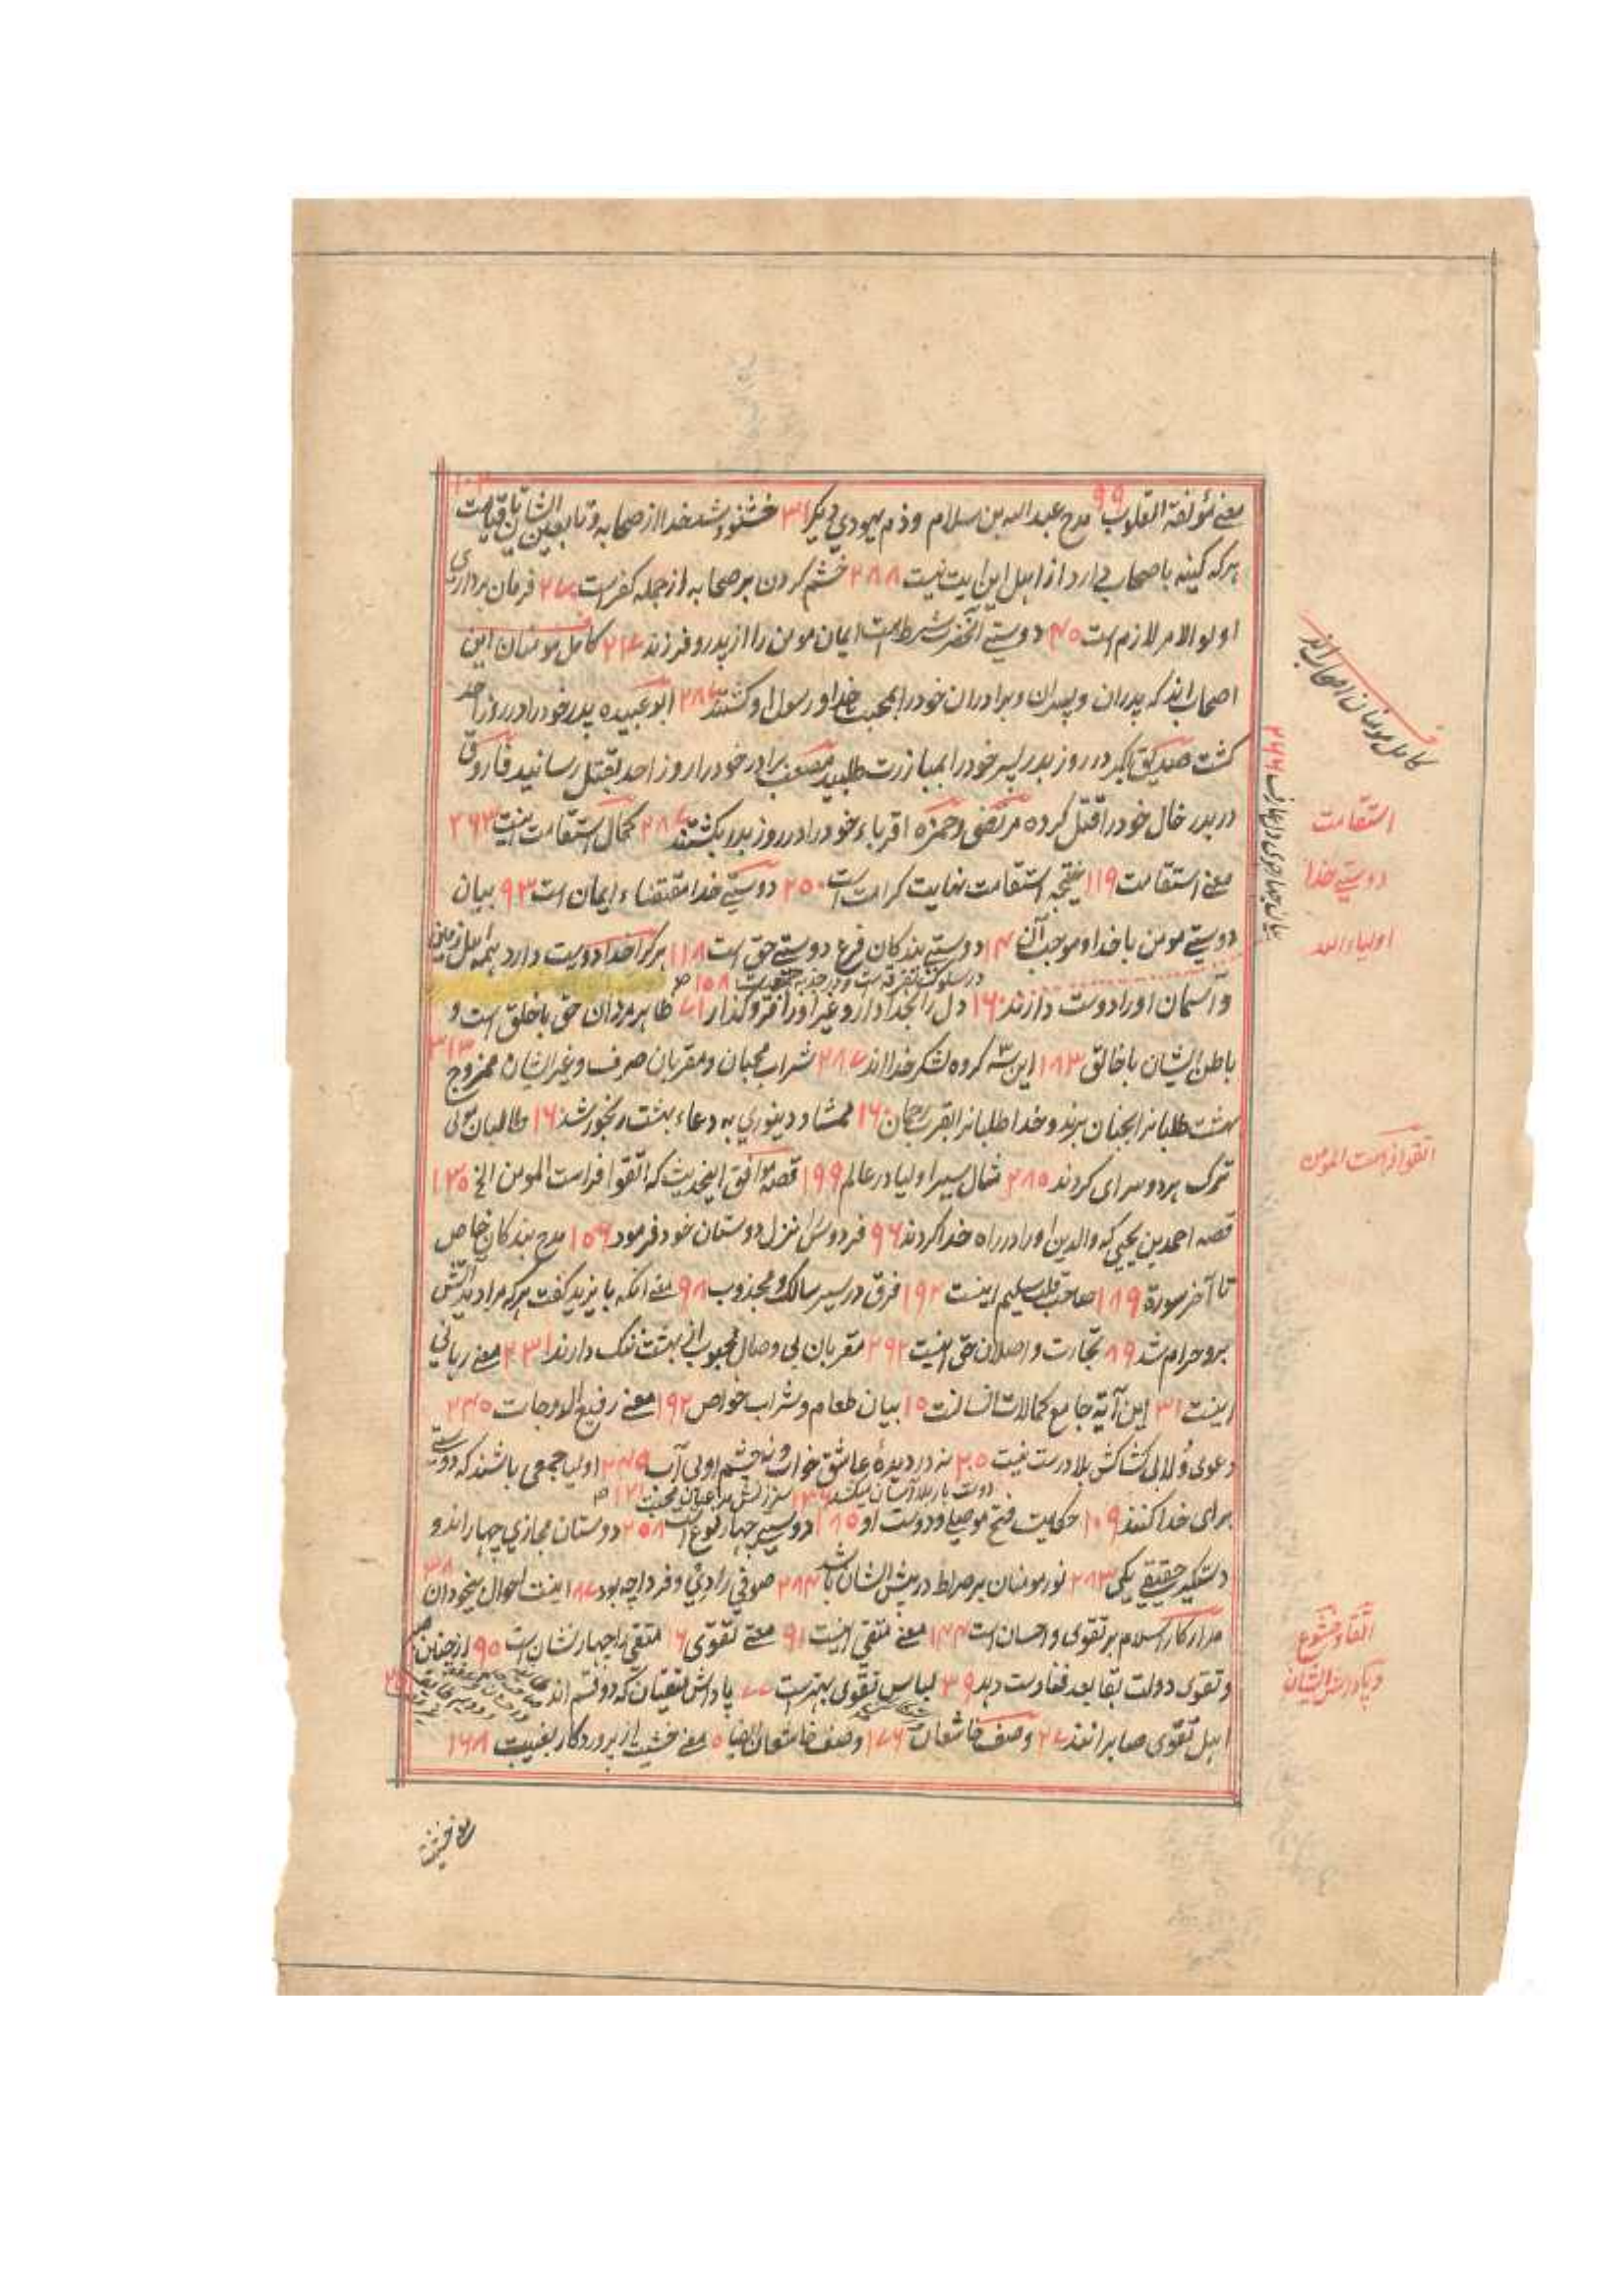 معنے مؤلفة القلوب ۹۹ مدح عبد الله بن سلام وذم یهودي دیکر ۳۱ خشنود شد خدا از صحابه و تابعین ایشان تا قیامت ۱۰۲
هر که کینه با صحابه دارد از اهل این ایت نیست ۲۸۸ خشم کردن بر صحابه از جمله کفرست ۲۷۰ فرمان برداری
اولو الامر لازم است ۴۵ دوستے آنحضرت شرط است ایمان مومن را از پدر و فرزند ۲۴۷ کامل مومنان این
اصحاب اند که پدران و پسران و برادران خود را بمحبت خدا و رسول او کشتند ۲۸۷ ابو عبیده پدر خود را در روز احد
کشت صدیق اکبر در روز بدر پسر خود را بمبازرت طلبید مصعب برادر خود را روز احد بقتل رسانید فاروق
در بدر خال خود را قتل کرده مرتضی و حمزه اقرباء خود را در روز بدر بکشتند ۲۸۷ کمال استقامت اینست ۲۶۳
معنے استقامت ۱۱۹ نتیجه استقامت نهایت کرامت است ۲۵۰ دوستیے خدا مقتضاء ایمان است ۹۳ بیان
دوستے مومن با خدا و موجب آن ۱۴ دوستے بندکان فرع دوستے حق است ۱۱۸ هر کرا خدا دوست دارد همه اهل زمین
در سلوک تفرقه است و در جذبه جمعیت ۱۵۸ صح
و آسمان او را دوست دارند ۱۶۰ دل را بخدا دار و غیر او را فرو کذار ۷۱ ظاهر مردان حق با خلق است و
باطن ایشان با خالق ۱۸۳ این سه کروه لشکر خدا اند ۲۸۷ شراب محبان و مقربان صرف و غیر ایشان ممزوج ۳۱۳
بهشت طلبانرا بجنان برند و خدا طلبانرا بقرب رحمان ۱۶۰ ممشاد دینوري به دعاء بهشت رنجور شد ۱۶ طالبان مولی
ترک هر دو سرای کردند ۲۸۵ مثال سیر اولیا در عالم ۱۹۹ قصه موافق اینحدیث که اتقوا فراست المومن الخ ۱۳۵
قصه احمد بن یحیی که والدین او را در راه خدا کردند ۹۶ فردوس را نزل دوستان خود فرمود ۱۵۶ مدح بندکان خاص
تا آخر سورة ۱۸۹ صاحب قلب سلیم اینست ۱۹۲ فرق در سیر سالک و مجذوب ۹۸ معنے انکه بایزید کفت هر که مرا دید آتش
برو حرام شد ۸۹ تجارت واصلان حق اینست ۲۹۲ مقربان بی وصال محبوب از بهشت ننک دارند ۲۳۱ معنے رباني
اینست ۳۱ این آیة جامع کمالات انسانست ۱۵ بیان طعام و شراب خواص ۱۹۲ معنے رفیع الدرجات ۲۴۵
دعوی ولا بی کشاکش بلا درست نیست ۲۰۵ نه در دیدۀ عاشق خواب و نه چشم او بی آب ۲۷۵ اولیا جمعی باشند که دوستے
دوست بار بلا آسان میکشد ۱۴۶ سرزنش مدعیان محبت ۱۲۱ صح
برای خدا کنند ۱۰۹ حکایت فتح موصلي و دوست او ۱۸۵ دوستے چهار نوع است ۲۵۸ دوستان مجازي چهار اند و
دستکیر حقیقے یکی ۲۸۳ نور مومنان بر صراط در پیش ایشان باشد ۲۸۴ صوفي را دي و فردا چه بود ۸۷ اینست احوال بیخودان ۳۸
مدار کار اسلام بر تقوی و احسان است ۱۴۴ معنے متقی اینست ۹۱ معنے تقوی ۱۶ متقی را چهار نشان است ۹۵
و تقوی دولت بقا بعد فنا دست دهد ۳۹ لباس تقوی بهترست ۷۷ پاداش متقیان که دو قسم اند
اهل تقوی صابرانند ۲۷ وصف خاشعان ۱۷۶ وصف خاشعان ایضا ۵ معنے خشیت از پروردکار بغیبت ۱۶۸
کامل مومنان اصحاب اند
استقامت
دوستیے خدا
اولیاء الله
اتقوا فراست المومن
اتقا و خشوع
و پاداش ایشان